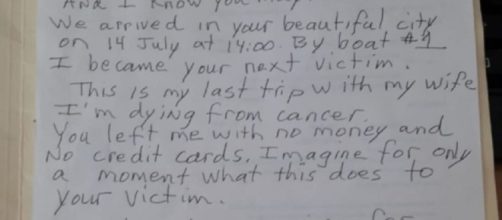 And I know you
We arrived in your beautiful city
on 14 July at 14:00. By boat #4
I became your next victim.
This is my last trip with my wife
I'm dying from cancer.
You left me with no money and
No credit cards. Imagine for only
a moment what this does to
your victim.